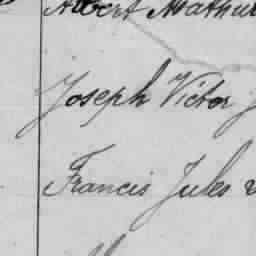 Albert Mathur
Joseph Victor J
Francis Jules